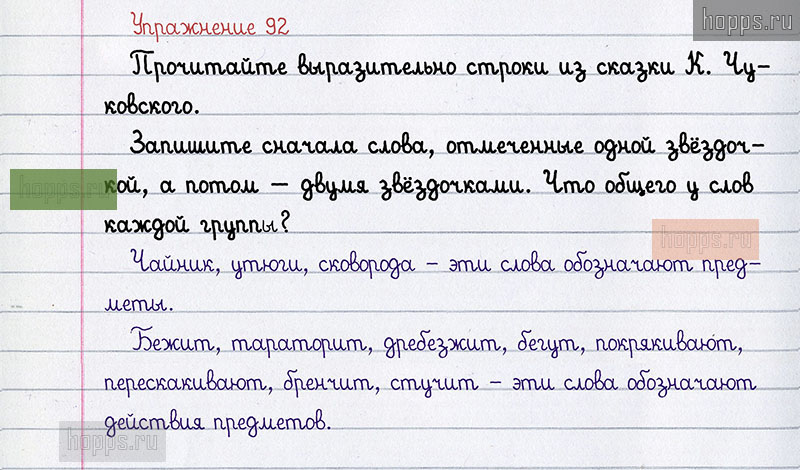 hopps.ru
Упражнение 92
Прочитайте выразительно строки из сказки К. Чу-
ковского.
Запишите сначала слова, отмеченные одной звёздоч-
hopps.ru
кой, а потом – двумя звёздочками. Что общего у слов
каждой группы?
hopps.ru
Чайник, утюги, сковорода – эти слова обозначают пред-
меты.
Бежит, тараторит, дребезжит, бегут, покрякивают,
перескакивают, бренчит, стучит – эти слова обозначают
действия предметов.
hopps.ru